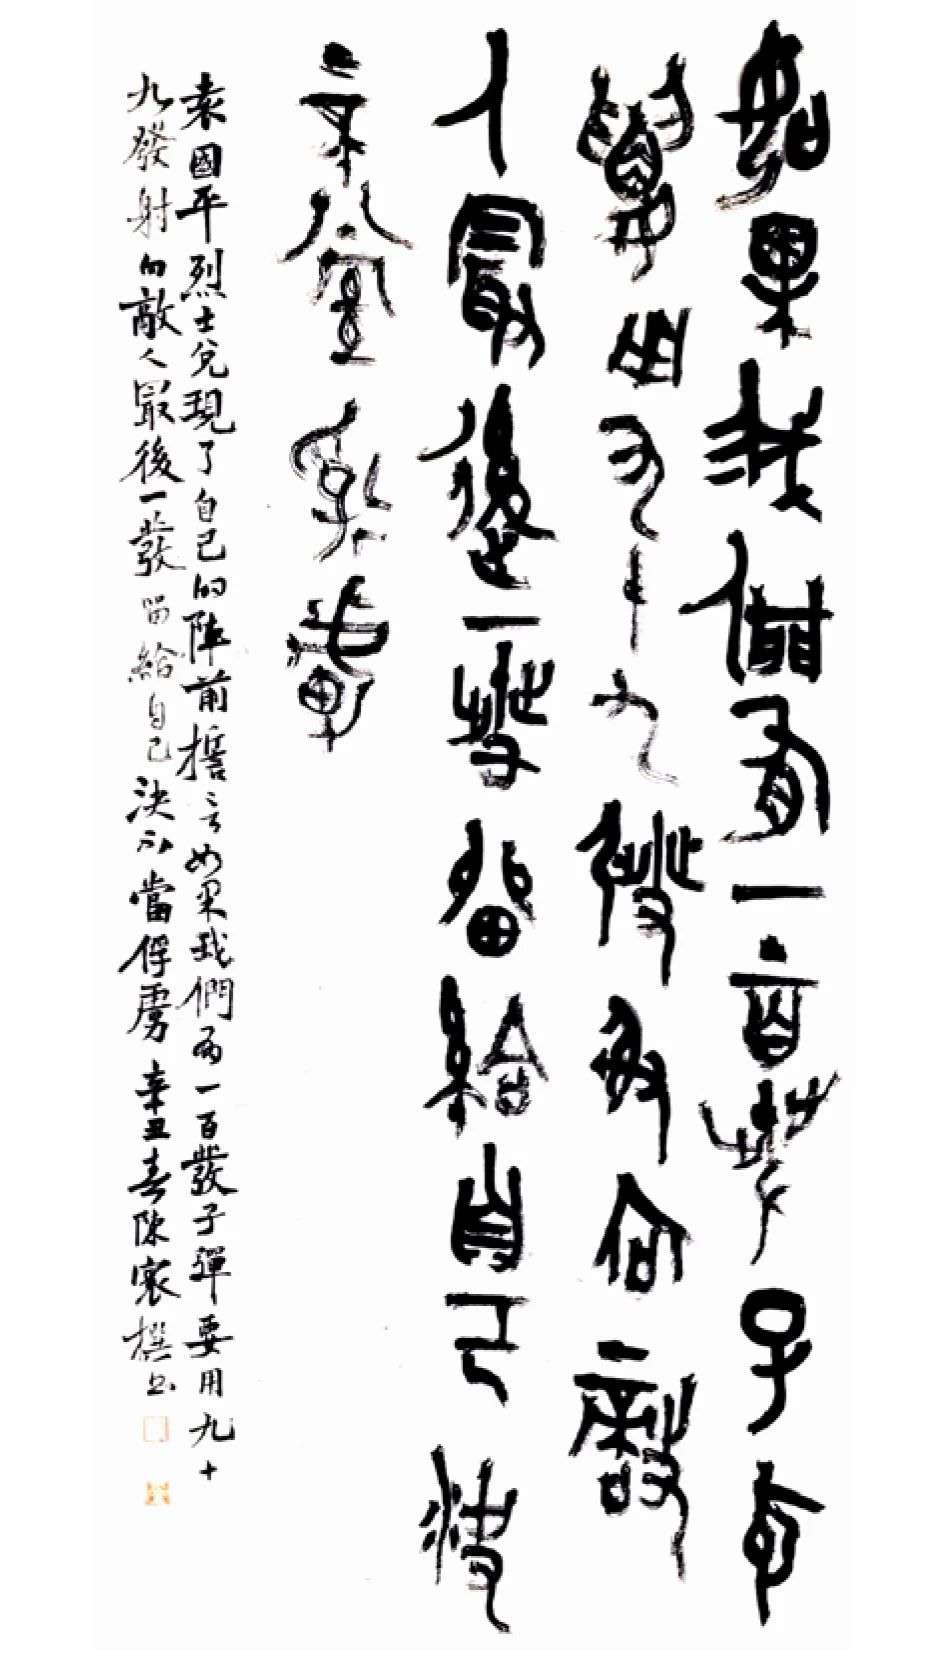 如果我們有一百發子彈
要用九十九發射向敵
人最後一發留給自己決
不當俘虜
袁國平烈士兌現了自己的陣前誓言如果我們有一百發子彈要用九十
九發射向敵人最後一發留給自己決不當俘虜辛丑春陳家撰書